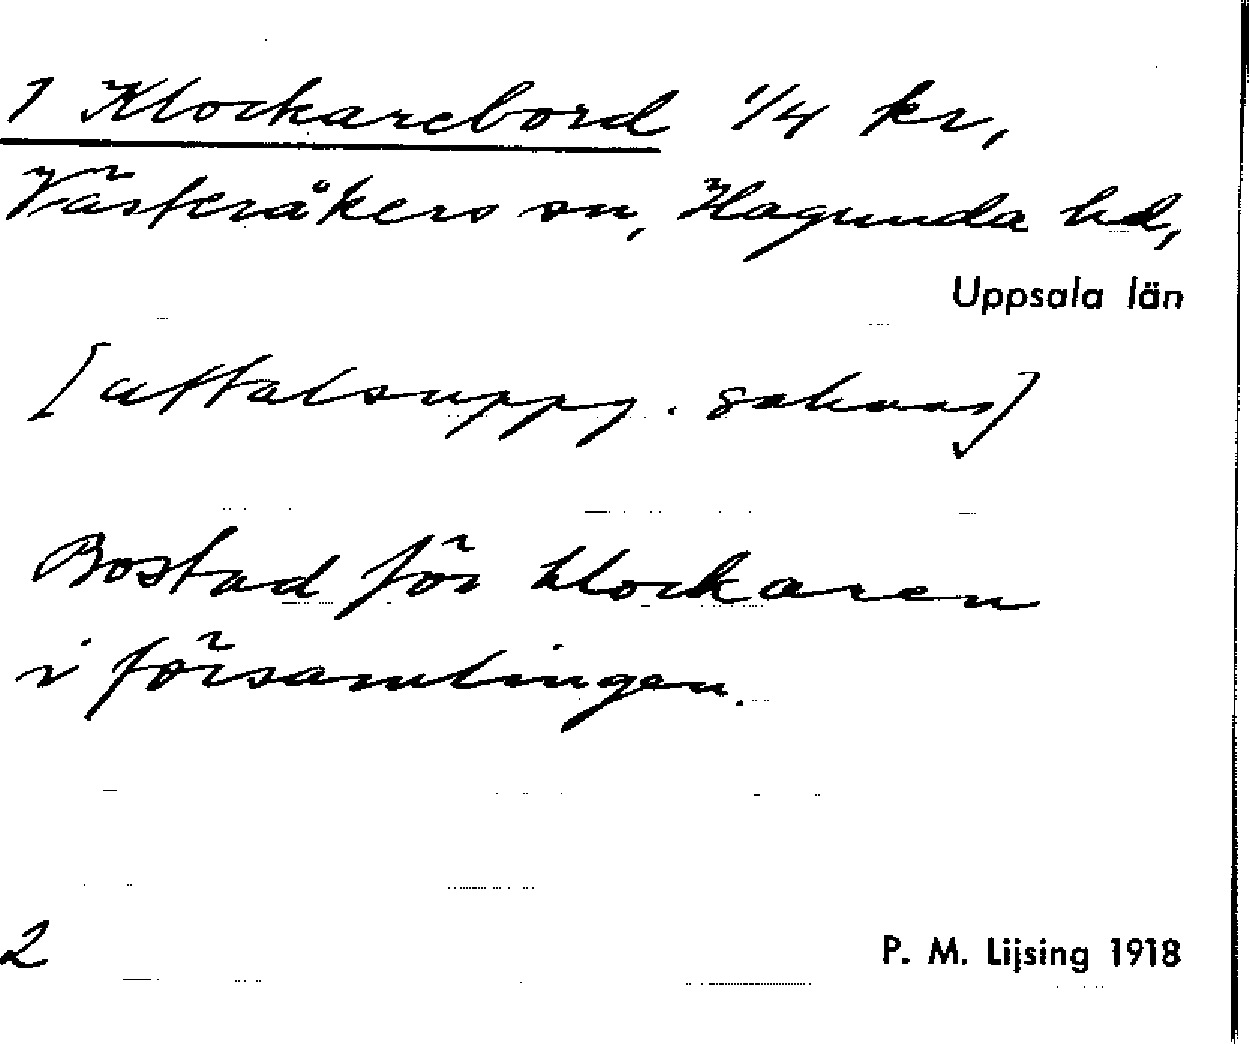 1 Klockarebord 1/4 kr,
Västeråkers sn, Hagunda hd,
Uppsala län
[uttalsuppg. saknas]
Bostad för klockaren
i församlingen.
2
P. M. Lijsing 1918